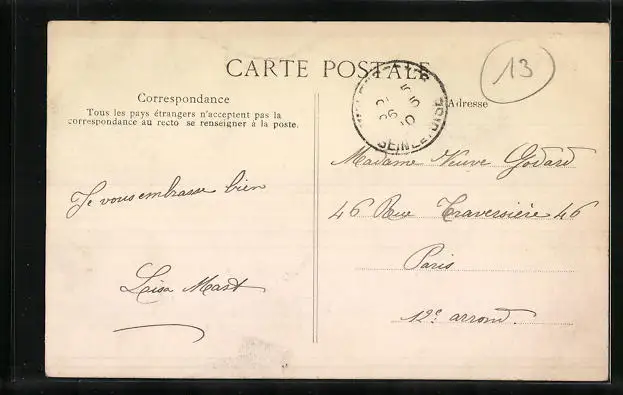 CARTE POSTALE
13
Correspondance
Tous les pays étrangers n'acceptent pas la
correspondance au recto se renseigner à la poste.
Adresse
SEINE-ET-OISE
Je vous embrasse bien
Madame Veuve Godard
46 Rue Traversière 46
Paris
12e arrond.